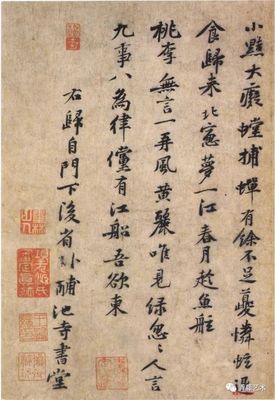 小黠大癡螳捕蟬有餘不足夔憐蚿退
食歸來北窓夢一江春月趁魚舡
桃李無言一再風黃鸝唯見綠怱怱人言
九事八為律儻有江船吾欲東
右歸自門下後省卧酺池寺書堂